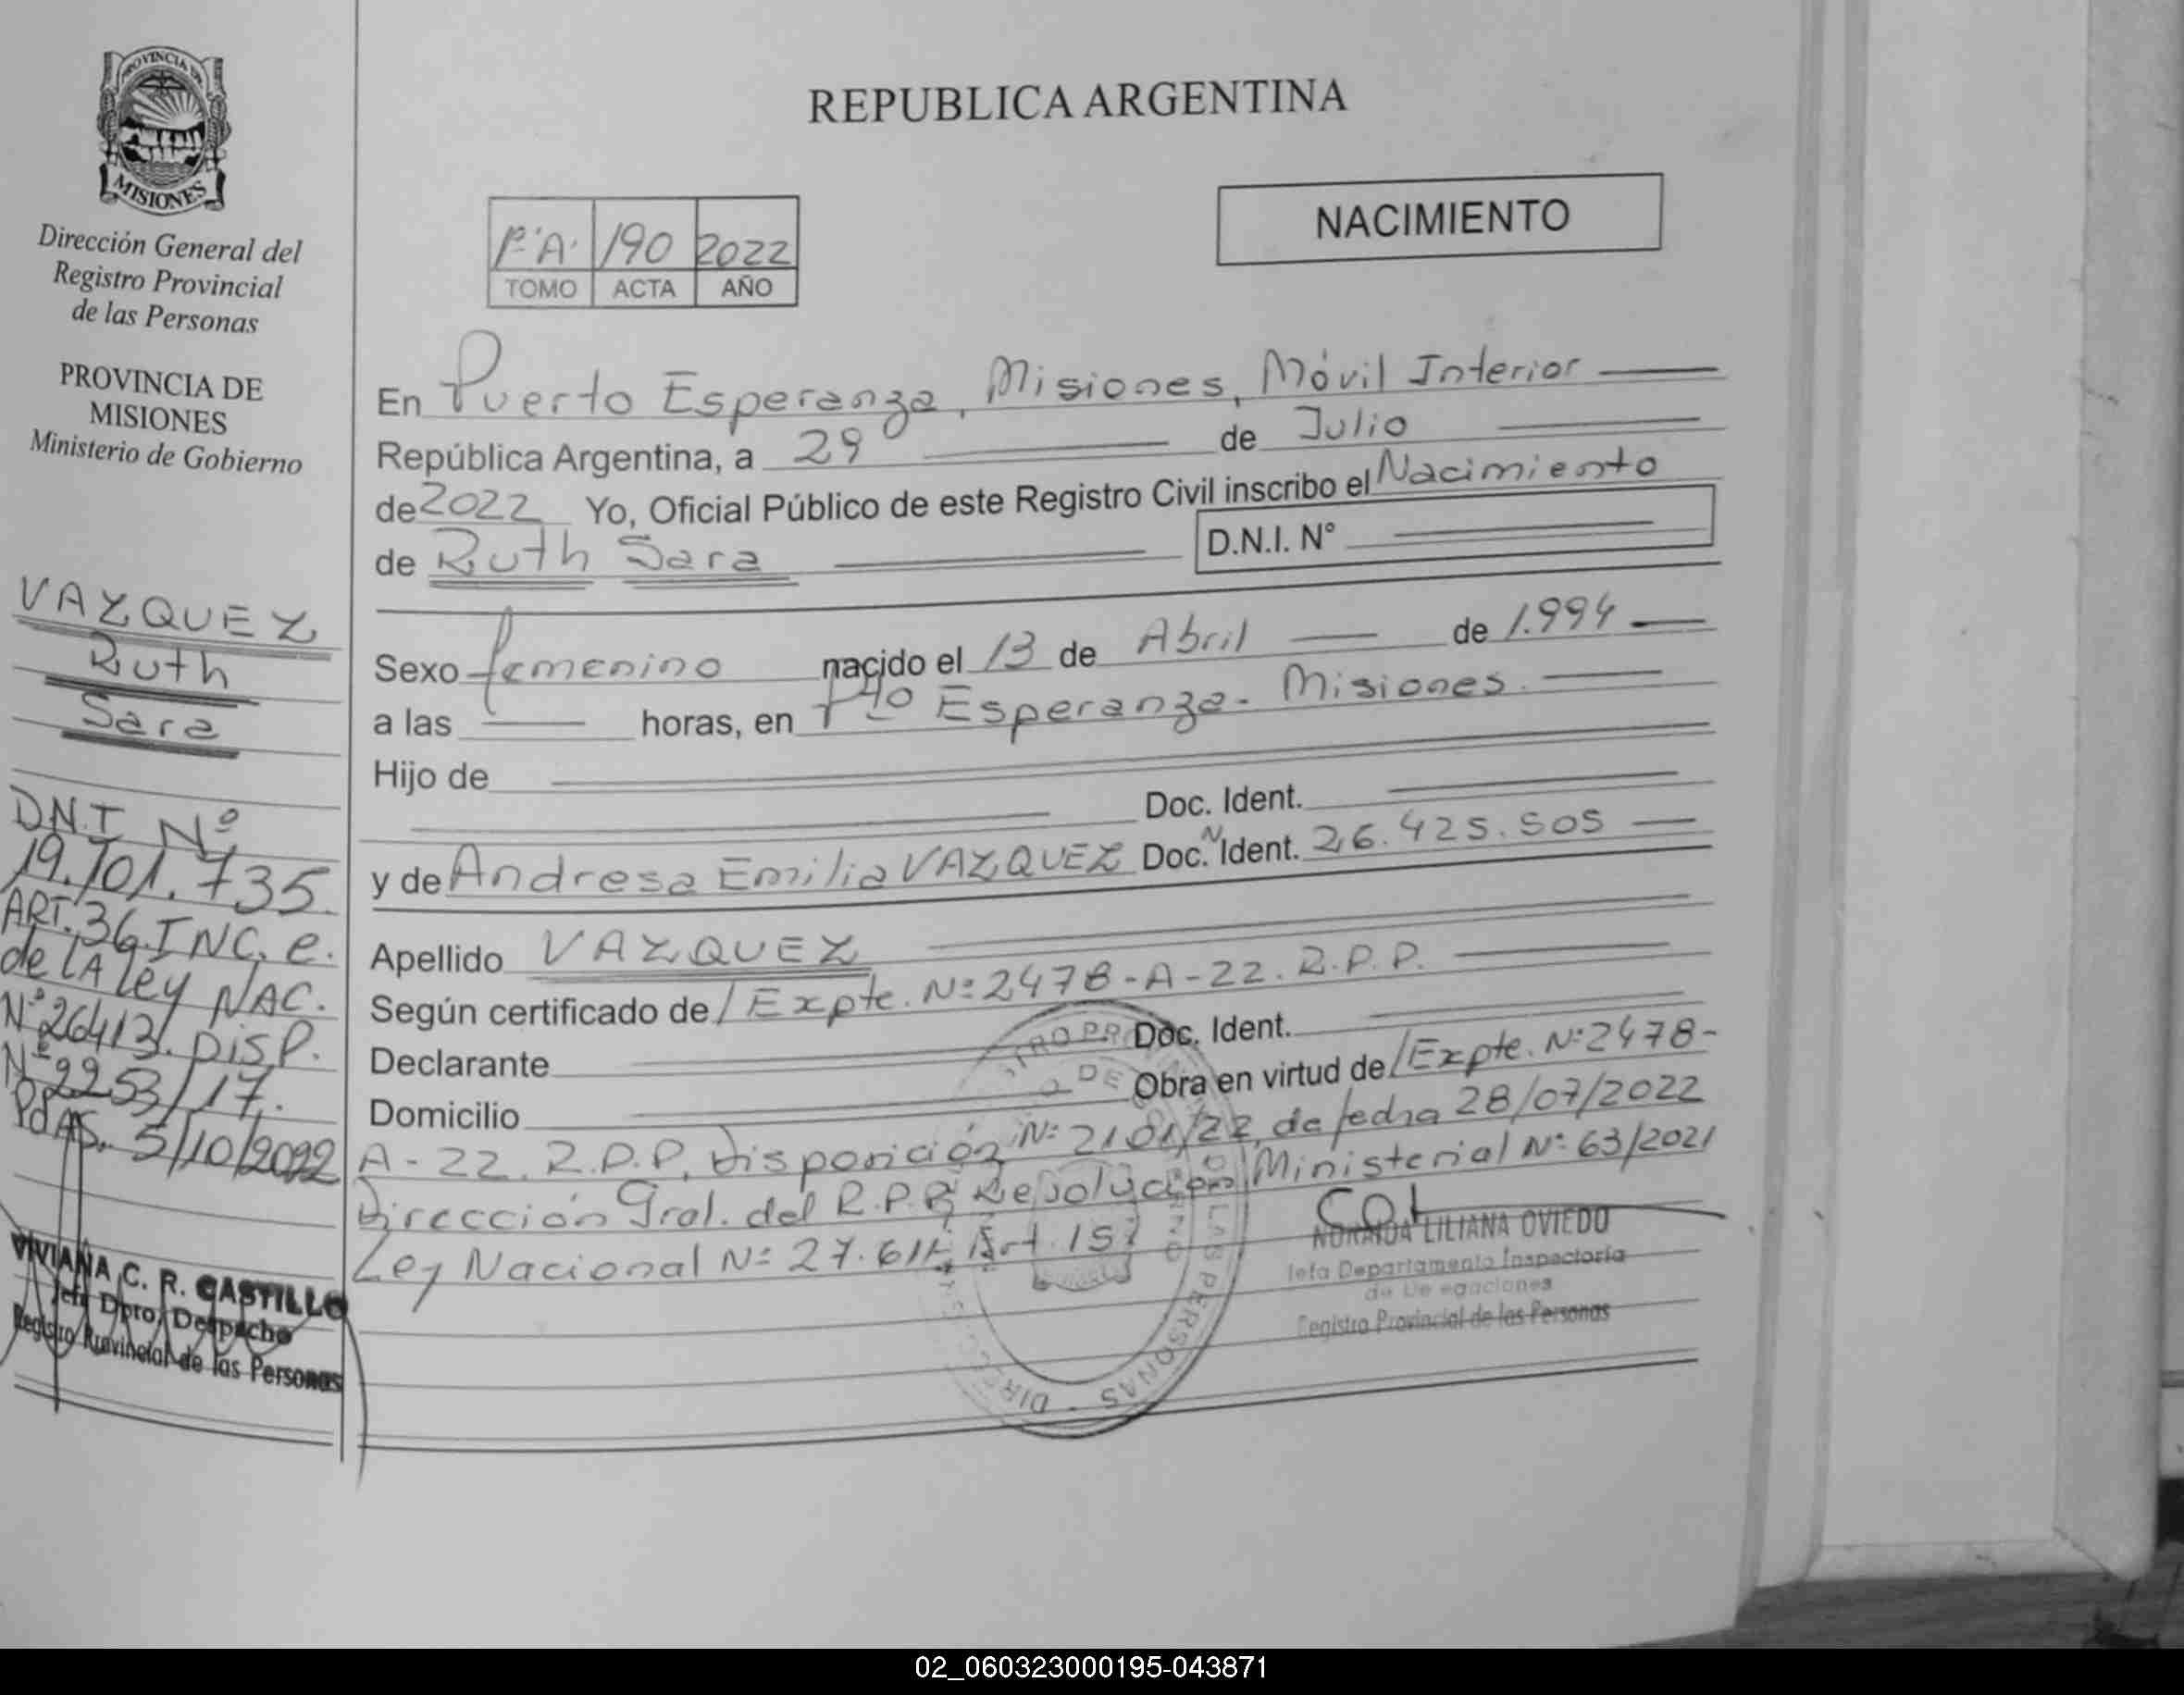 PROVINCIA DE
MISIONES
Dirección General del
Registro Provincial
de las Personas
PROVINCIA DE
MISIONES
Ministerio de Gobierno
VAZQUEZ
Ruth
Sara
D.N.I Nº
19.101.735.
ART. 36 INC. e.
de LA Ley NAC.
Nº 26413. DISP.
Nº 2253/17.
PdAS. 5/10/2022
VIVIANA C. R. CASTILLO
Jefe Dpto. Despacho
Registro Provincial de las Personas
REPUBLICA ARGENTINA
NACIMIENTO
Pº"A" 190 2022
TOMO ACTA AÑO
En Puerto Esperanza, Misiones, Móvil Interior
República Argentina, a 29 de Julio
de 2022 Yo, Oficial Público de este Registro Civil inscribo el Nacimiento
de Ruth Sara D.N.I. N°
Sexo femenino nacido el 13 de Abril de 1.994
a las horas, en Pto Esperanza - Misiones.
Hijo de
Doc. Ident.
y de Andresa Emilia VAZQUEZ Doc. N Ident. 26.425.505
Apellido VAZQUEZ
Según certificado de / Expte. Nº 2478-A-22. R.P.P.
Declarante Doc. Ident.
Domicilio Obra en virtud de / Expte. Nº 2478-
A-22. R.P.P. Disposición Nº 2101/22, de fecha 28/07/2022
Dirección Gral. del R.P.P. Resolución Ministerial Nº 63/2021
Ley Nacional Nº 27.611 Art. 15
NORMA LILIANA OVIEDO
Jefa Departamento Inspectoría
de Delegaciones
Registro Provincial de las Personas
02_060323000195-043871